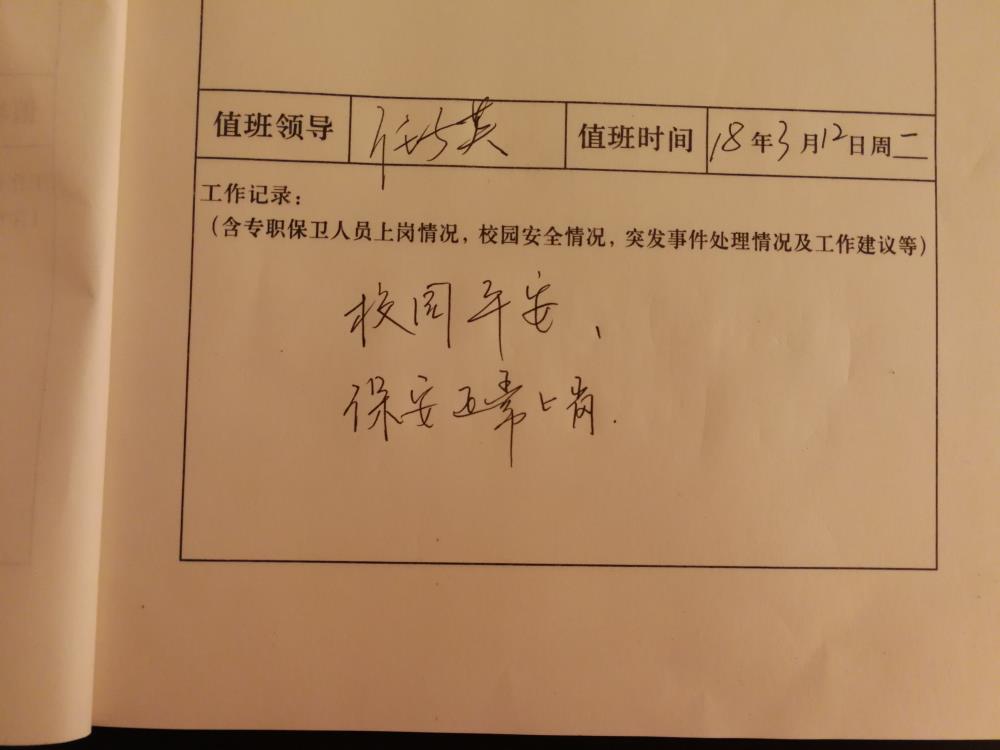 值班领导 英 值班时间 18年3月12日周二
工作记录：
（含专职保卫人员上岗情况，校园安全情况，突发事件处理情况及工作建议等）
校园平安、
保安正常上岗.